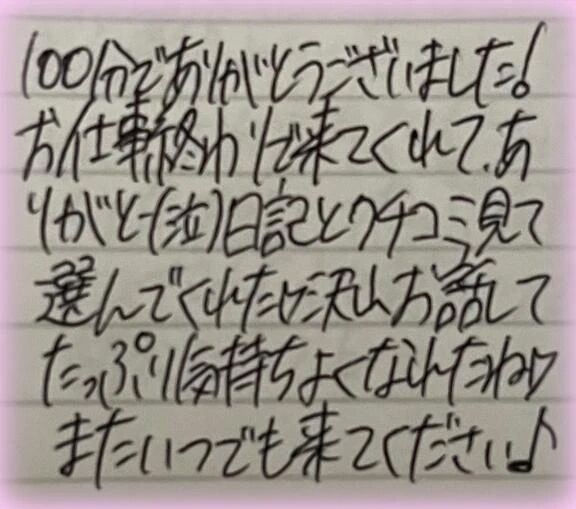 100分でありがとうございました!
お仕事終わりで来てくれて、あ
りがと~(泣)日記とクチコミ見て
選んでくれたけど沢山お話して
たっぷり気持ちよくなれたね
またいつでも来てください♪